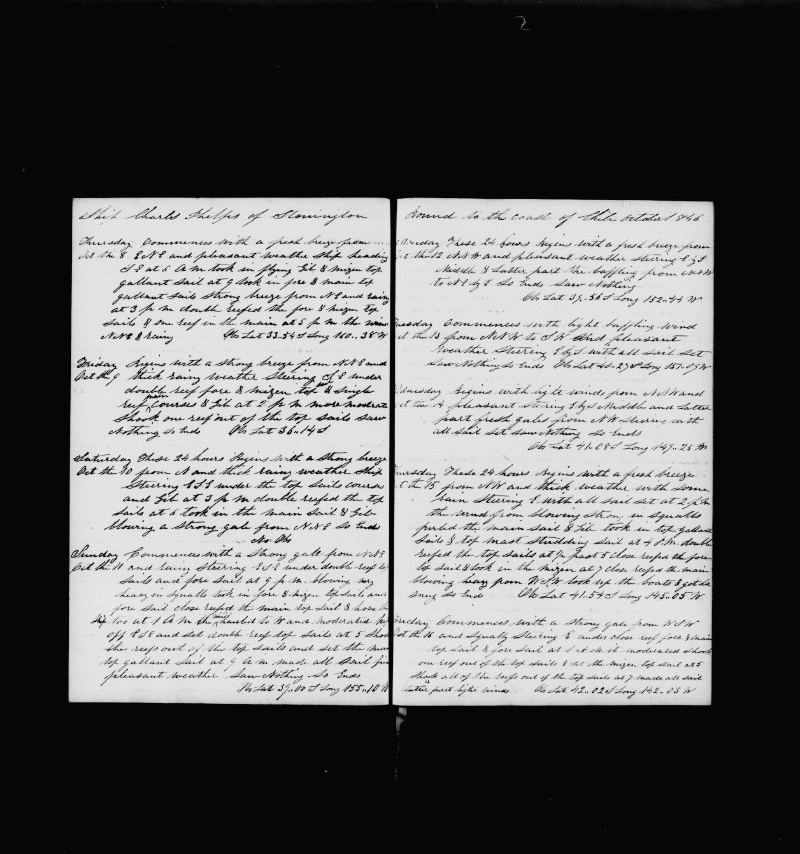 2
Ship Charles Phelps of Stonington
Thursday Commences with a fresh breeze from
Oct the 8 E N E and pleasant weather Ship heading
S E at 6 A M took in flying Jib & mizen top
gallant sail at 9 took in fore & main top
gallant sails Strong breeze from N E and rainy
at 3 p m double reefed the fore & mizen top
sails & one reef in the main at 5 p m the wind
N N E & rainy Ob Lat 33..54 S Long 160..38 W
Friday Begins with a strong breeze from N N E and
Oct the 9 thick rainy weather Steering S E under
double reef fore & mizen top & single
reef main courses & Jib at 2 p m more moderate
Shook one reef out of the top sails Saw
Nothing So Ends Ob Lat 36..14 S
Saturday These 24 hours Begins with a Strong breeze
Oct the 10 from N and thick rainy weather Ship
Steering E S E under the top sails courses
and Jib at 3 p m double reefed the top
sails at 6 took in the main sail & Jib
blowing a Strong gale from N N E So Ends
No Ob
Sunday Commences with a Strong gale from N N E
Oct the 11 and rainy Steering E S E under double reef top
sails and fore sail at 9 p m blowing very
heavy in squalls took in fore & mizen top sails and
fore sail close reefed the main top sail & hove the
Ship too at 1 A M then hauled to W and moderated kept
off E S E and set double reef top sails at 5 Shook
the reefs out of the top sails and set the main
top gallant sail at 9 A m made all sail fine
pleasant weather Saw Nothing So Ends
Ob Lat 39..00 S Long 155..10 W
Bound to the coast of Chile October 1846
Monday These 24 hours begins with a fresh breeze from
Oct the 12 N N W and pleasant weather steering E by S
Middle & Latter part the baffling from N N W
to N E by E So Ends Saw Nothing
Ob Lat 39..56 S Long 152..44 W
Tuesday Commences with light baffling wind
Oct the 13 from N N W to S W and pleasant
weather Steering E by S with all sail set
Saw Nothing So Ends Ob Lat 40..29 S Long 151..09 W
Wednesday Begins with light winds from N N W and
Oct the 14 pleasant stering E by S Middle and Latter
part fresh gales from N W Stering with
all sail set Saw Nothing So Ends
Ob Lat 41..08 S Long 149..25 W
Thursday These 24 hours Begins with a fresh breeze
Oct the 15 from N W and thick weather with some
rain Steering E with all sail set at 2 P M
the wind from blowing Strong in squalls
furled the main sail & Jib took in top gallant
sails & top mast Studding sail at 4 P.M. double
reefed the top sails at ½ past 5 close reefed the fore
top sail & took in the mizen at 7 close reefed the main
blowing heavy from W S W took up the boats & got all
snug So Ends Ob Lat 41..54 S Long 145..05 W
Friday Commences with a Strong gale from W S W
Oct the 16 and squally Steering E under close reef fore & main
top sail & fore sail at 1 A M it moderated Shook
one reef out of the top sails & set the mizen top sail at 5
Shook all of the reefs out of the top sails at 7 made all sail
Latter part light winds Ob Lat 42..02 S Long 142..03 W